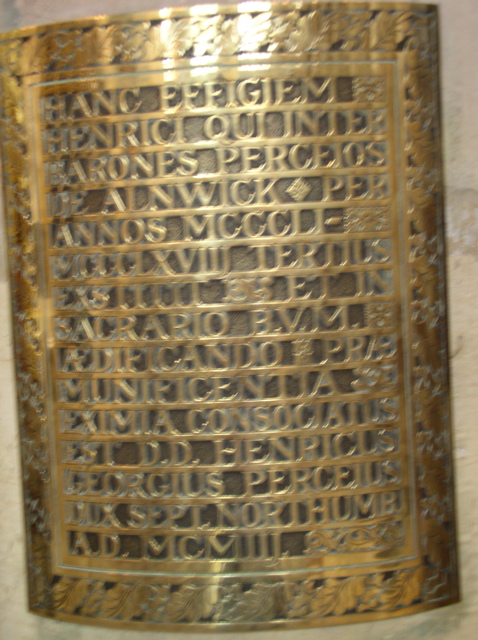 HANC EFFIGIEM
HENRICI QUI INTER
BARONES PERCEIOS
DE ALNWICK PER
ANNOS MCCCLII-
MCCCLXVIII TERTIUS
EXSTITIT ET IN
SACRARIO B.V.M.
ÆDIFICANDO PRAE
MUNIFICENTIA
EXIMIA CONSOCIATUS
EST D.D. HENRICUS
GEORGIUS PERCEIUS
DUX SEPT. NORTHUMB.
A.D. MCMIII.